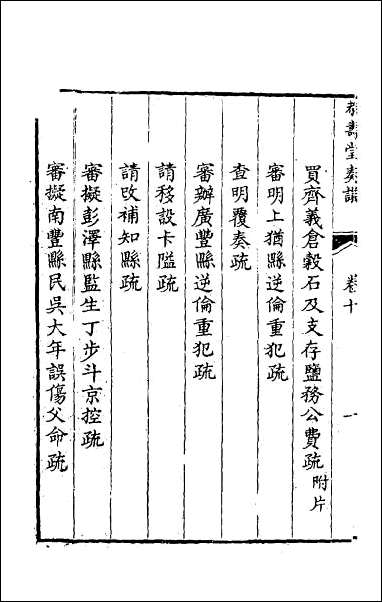 壽堂奏議
卷十
一
買齊義倉穀石及支存鹽務公費疏附片
審明上猶縣逆倫重犯疏
查明覆奏疏
審辦廣豐縣逆倫重犯疏
請移設卡隘疏
請改補知縣疏
審擬彭澤縣監生丁步斗京控疏
審擬南豐縣民吳大年誤傷父命疏